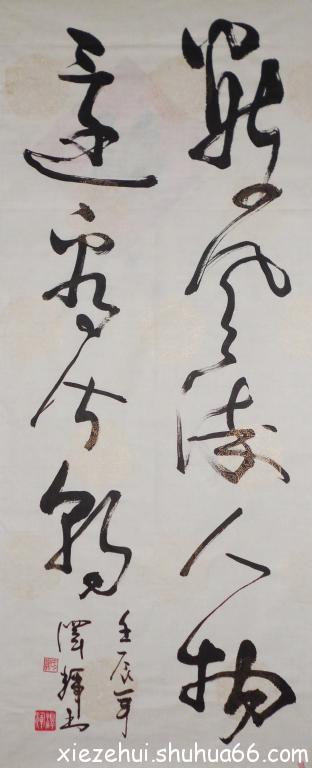 數風流人物
還看今朝
壬辰年
澤輝书
xiezehui.shuhua66.com